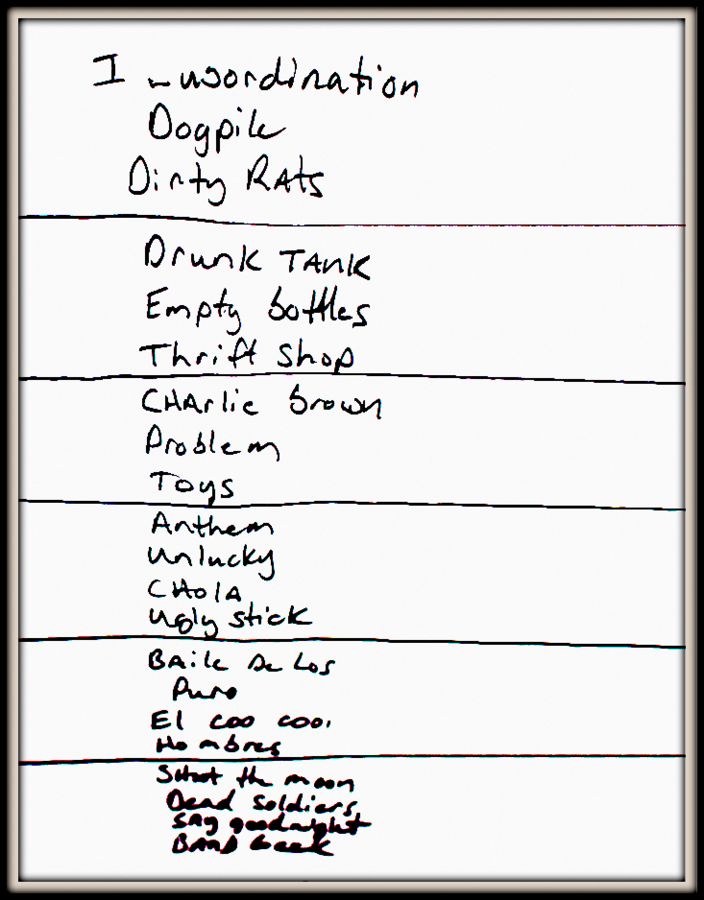 I
Dogpile
Dirty Rats
Drunk TANK
Empty bottles
Thrift Shop
CHArlie brown
Problem
Toys
Anthem
Unlucky
CHolA
Ugly stick
BAile De Los
El coo coo
Hombres
Shoot the moon
Dead Soldiers
SAy goodnight
BAND Geek